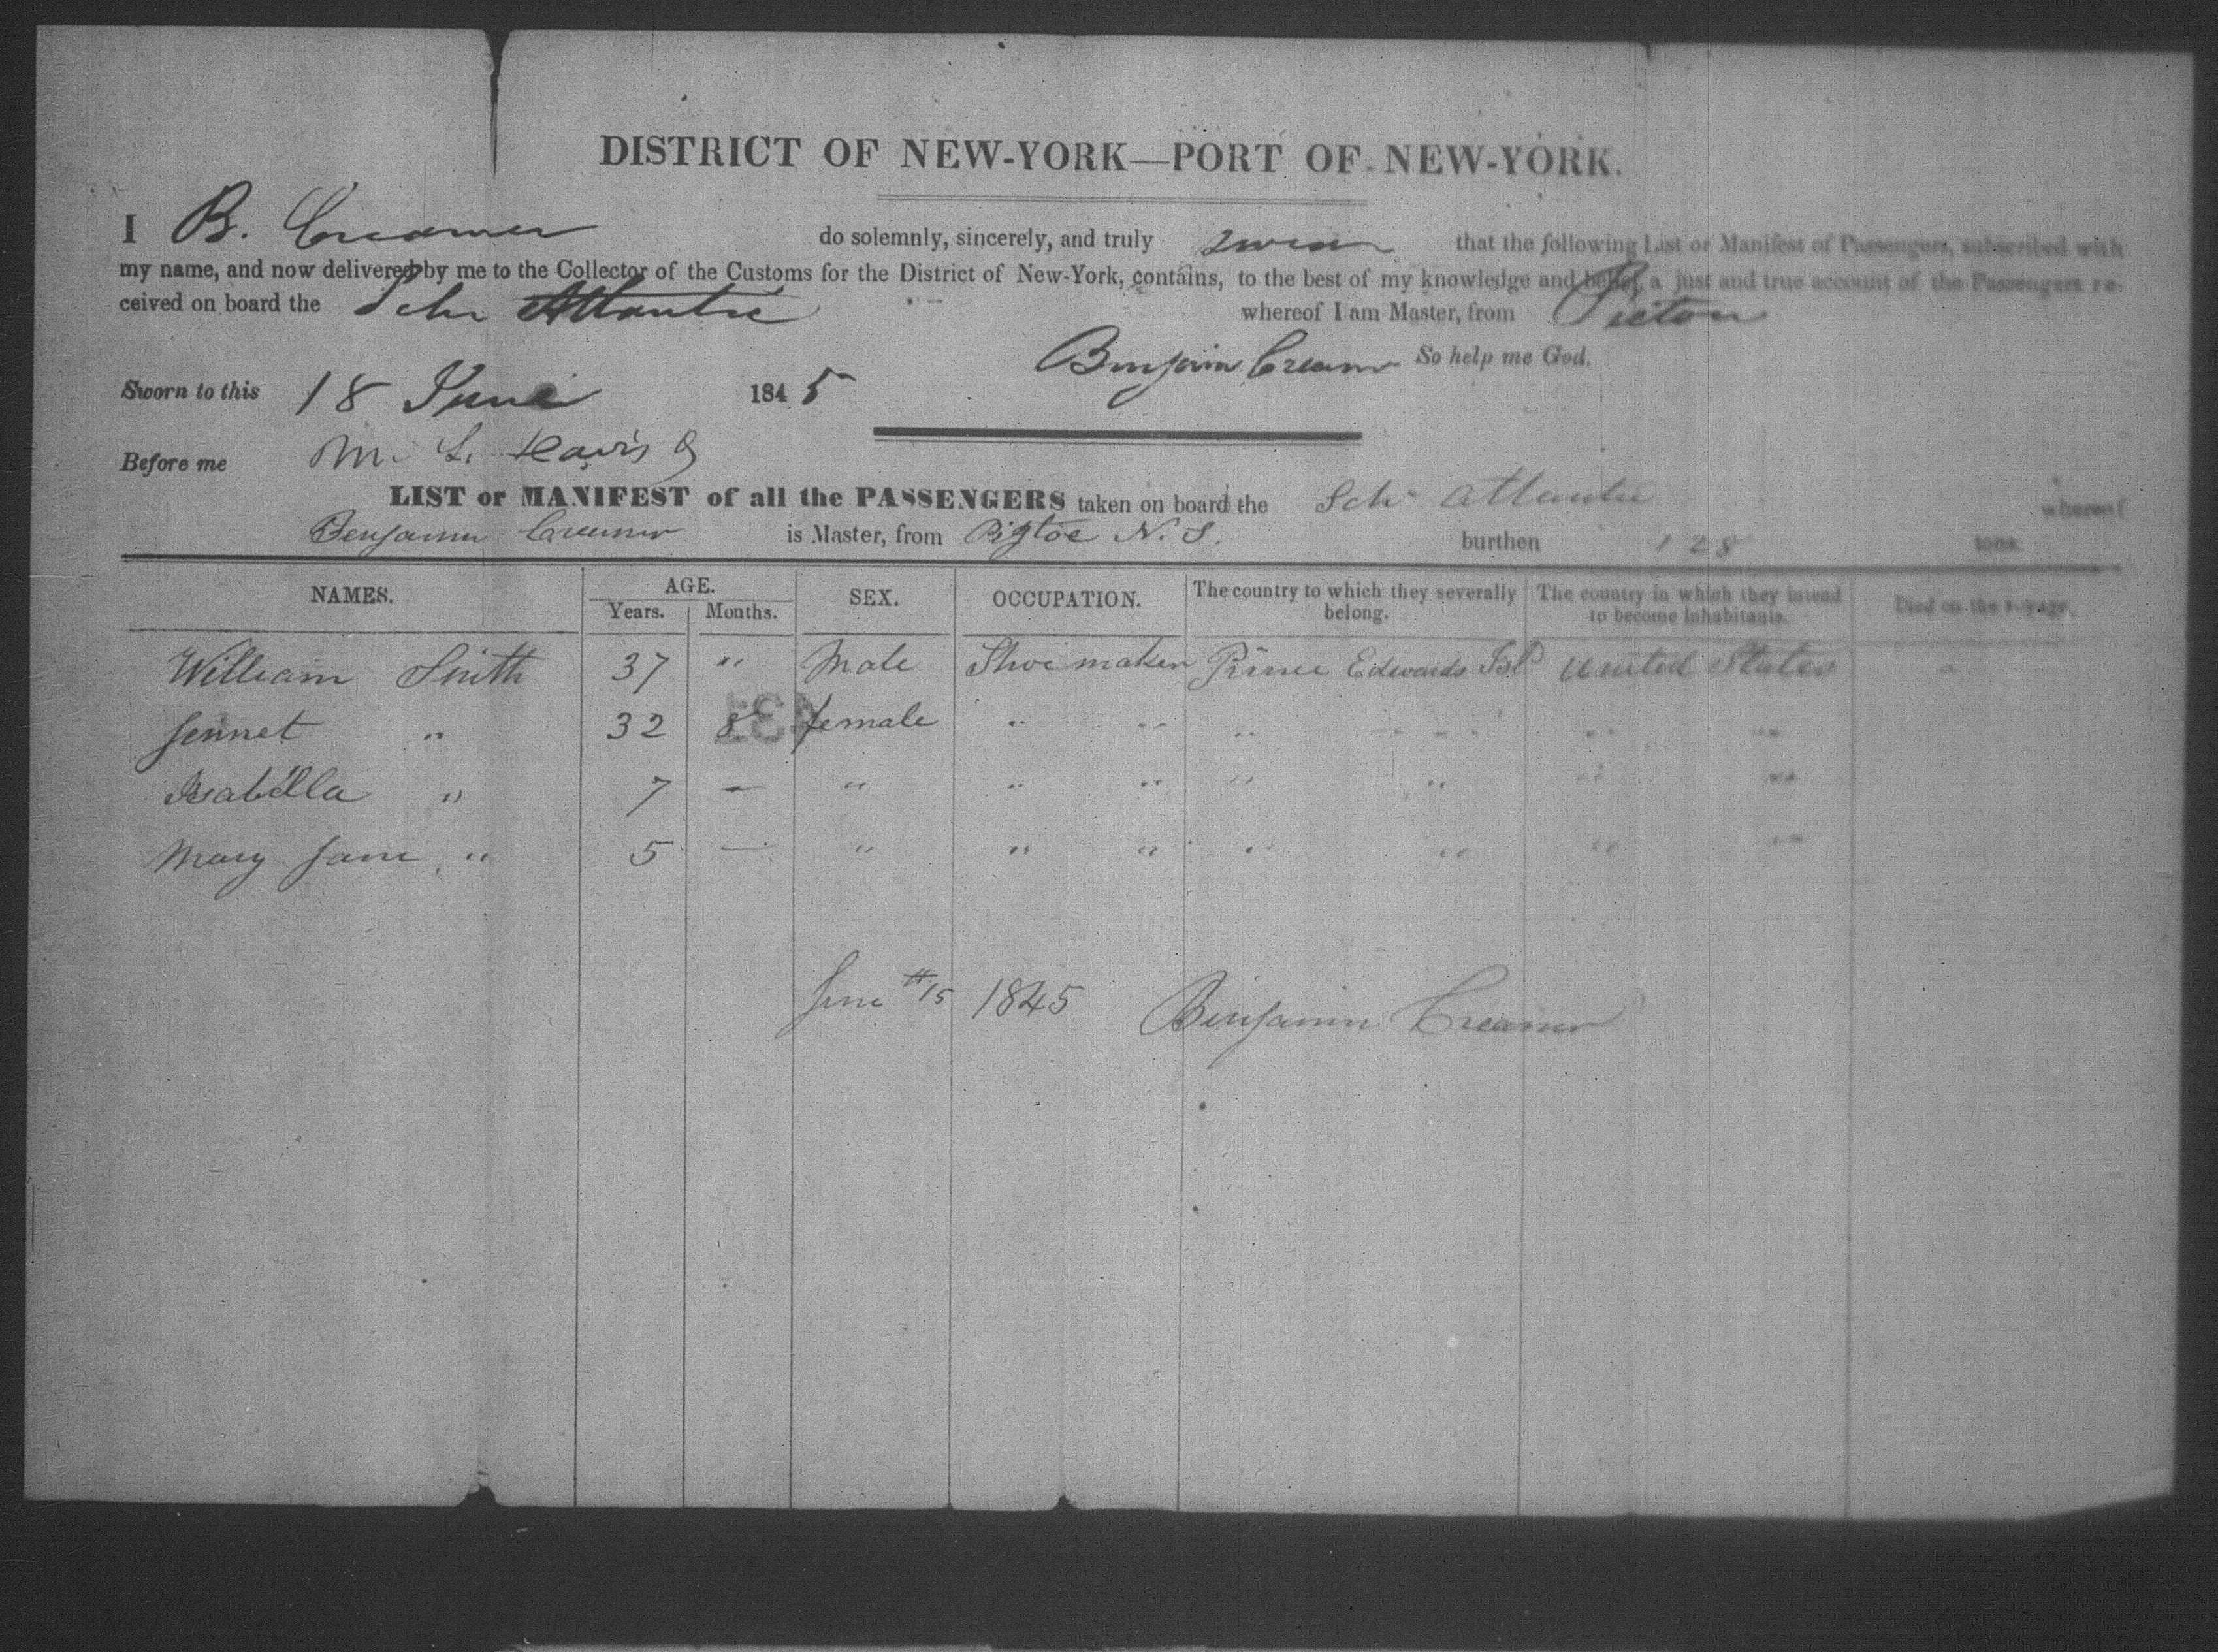 DISTRICT OF NEW-YORK—PORT OF NEW-YORK.
I B. Creamer do solemnly, sincerely, and truly swear that the following List or Manifest of Passengers, subscribed with
my name, and now delivered by me to the Collector of the Customs for the District of New-York, contains, to the best of my knowledge and belief, a just and true account of the Passengers re-
ceived on board the Schr Atlantic whereof I am Master, from Picton
Benjamin Creamer So help me God.
Sworn to this 18 June 1845
Before me M. L. Davis
LIST or MANIFEST of all the PASSENGERS taken on board the Schr Atlantic whereof
Benjamin Creamer is Master, from Pigtoe N. S. burthen 128 tons.
NAMES. AGE. Years. Months. SEX. OCCUPATION. The country to which they severally belong. The country in which they intend to become inhabitants. Died on the voyage.
William Smith 37 " Male Shoe maker Prince Edwards Isld United States "
Jennet " 32 8 female " " " " " "
Isabella " 7 — " " " " " " "
Mary Jane " 5 — " " " " " " "
June 15 1845 Benjamin Creamer